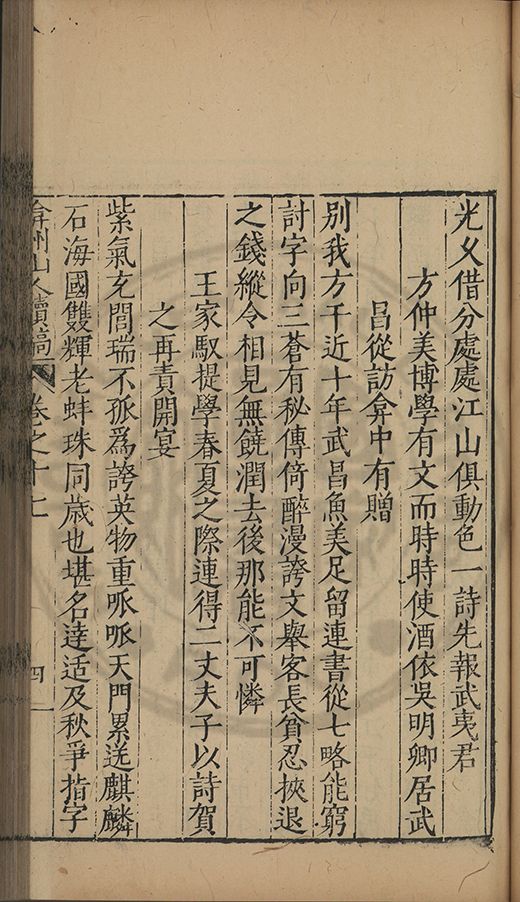 光乂借分處處江山俱動色一詩先報武夷君
方仲美博學有文而時時使酒依吳明卿居武
昌從訪弇中有贈
別我方干近十年武昌魚美足留連書從七略能窮
討字向三蒼有秘傳倚醉漫誇文舉客長貧忍挾退
之錢縱令相見無饒潤去後那能不可憐
王家馭提學春夏之際連得二丈夫子以詩賀
之再責開宴
紫氣充閭瑞不孤爲誇英物重呱呱天門累送麒麟
石海國雙輝老蚌珠同歳也堪名逹适及秋爭指字
弇州山人續稿
卷之十七
四